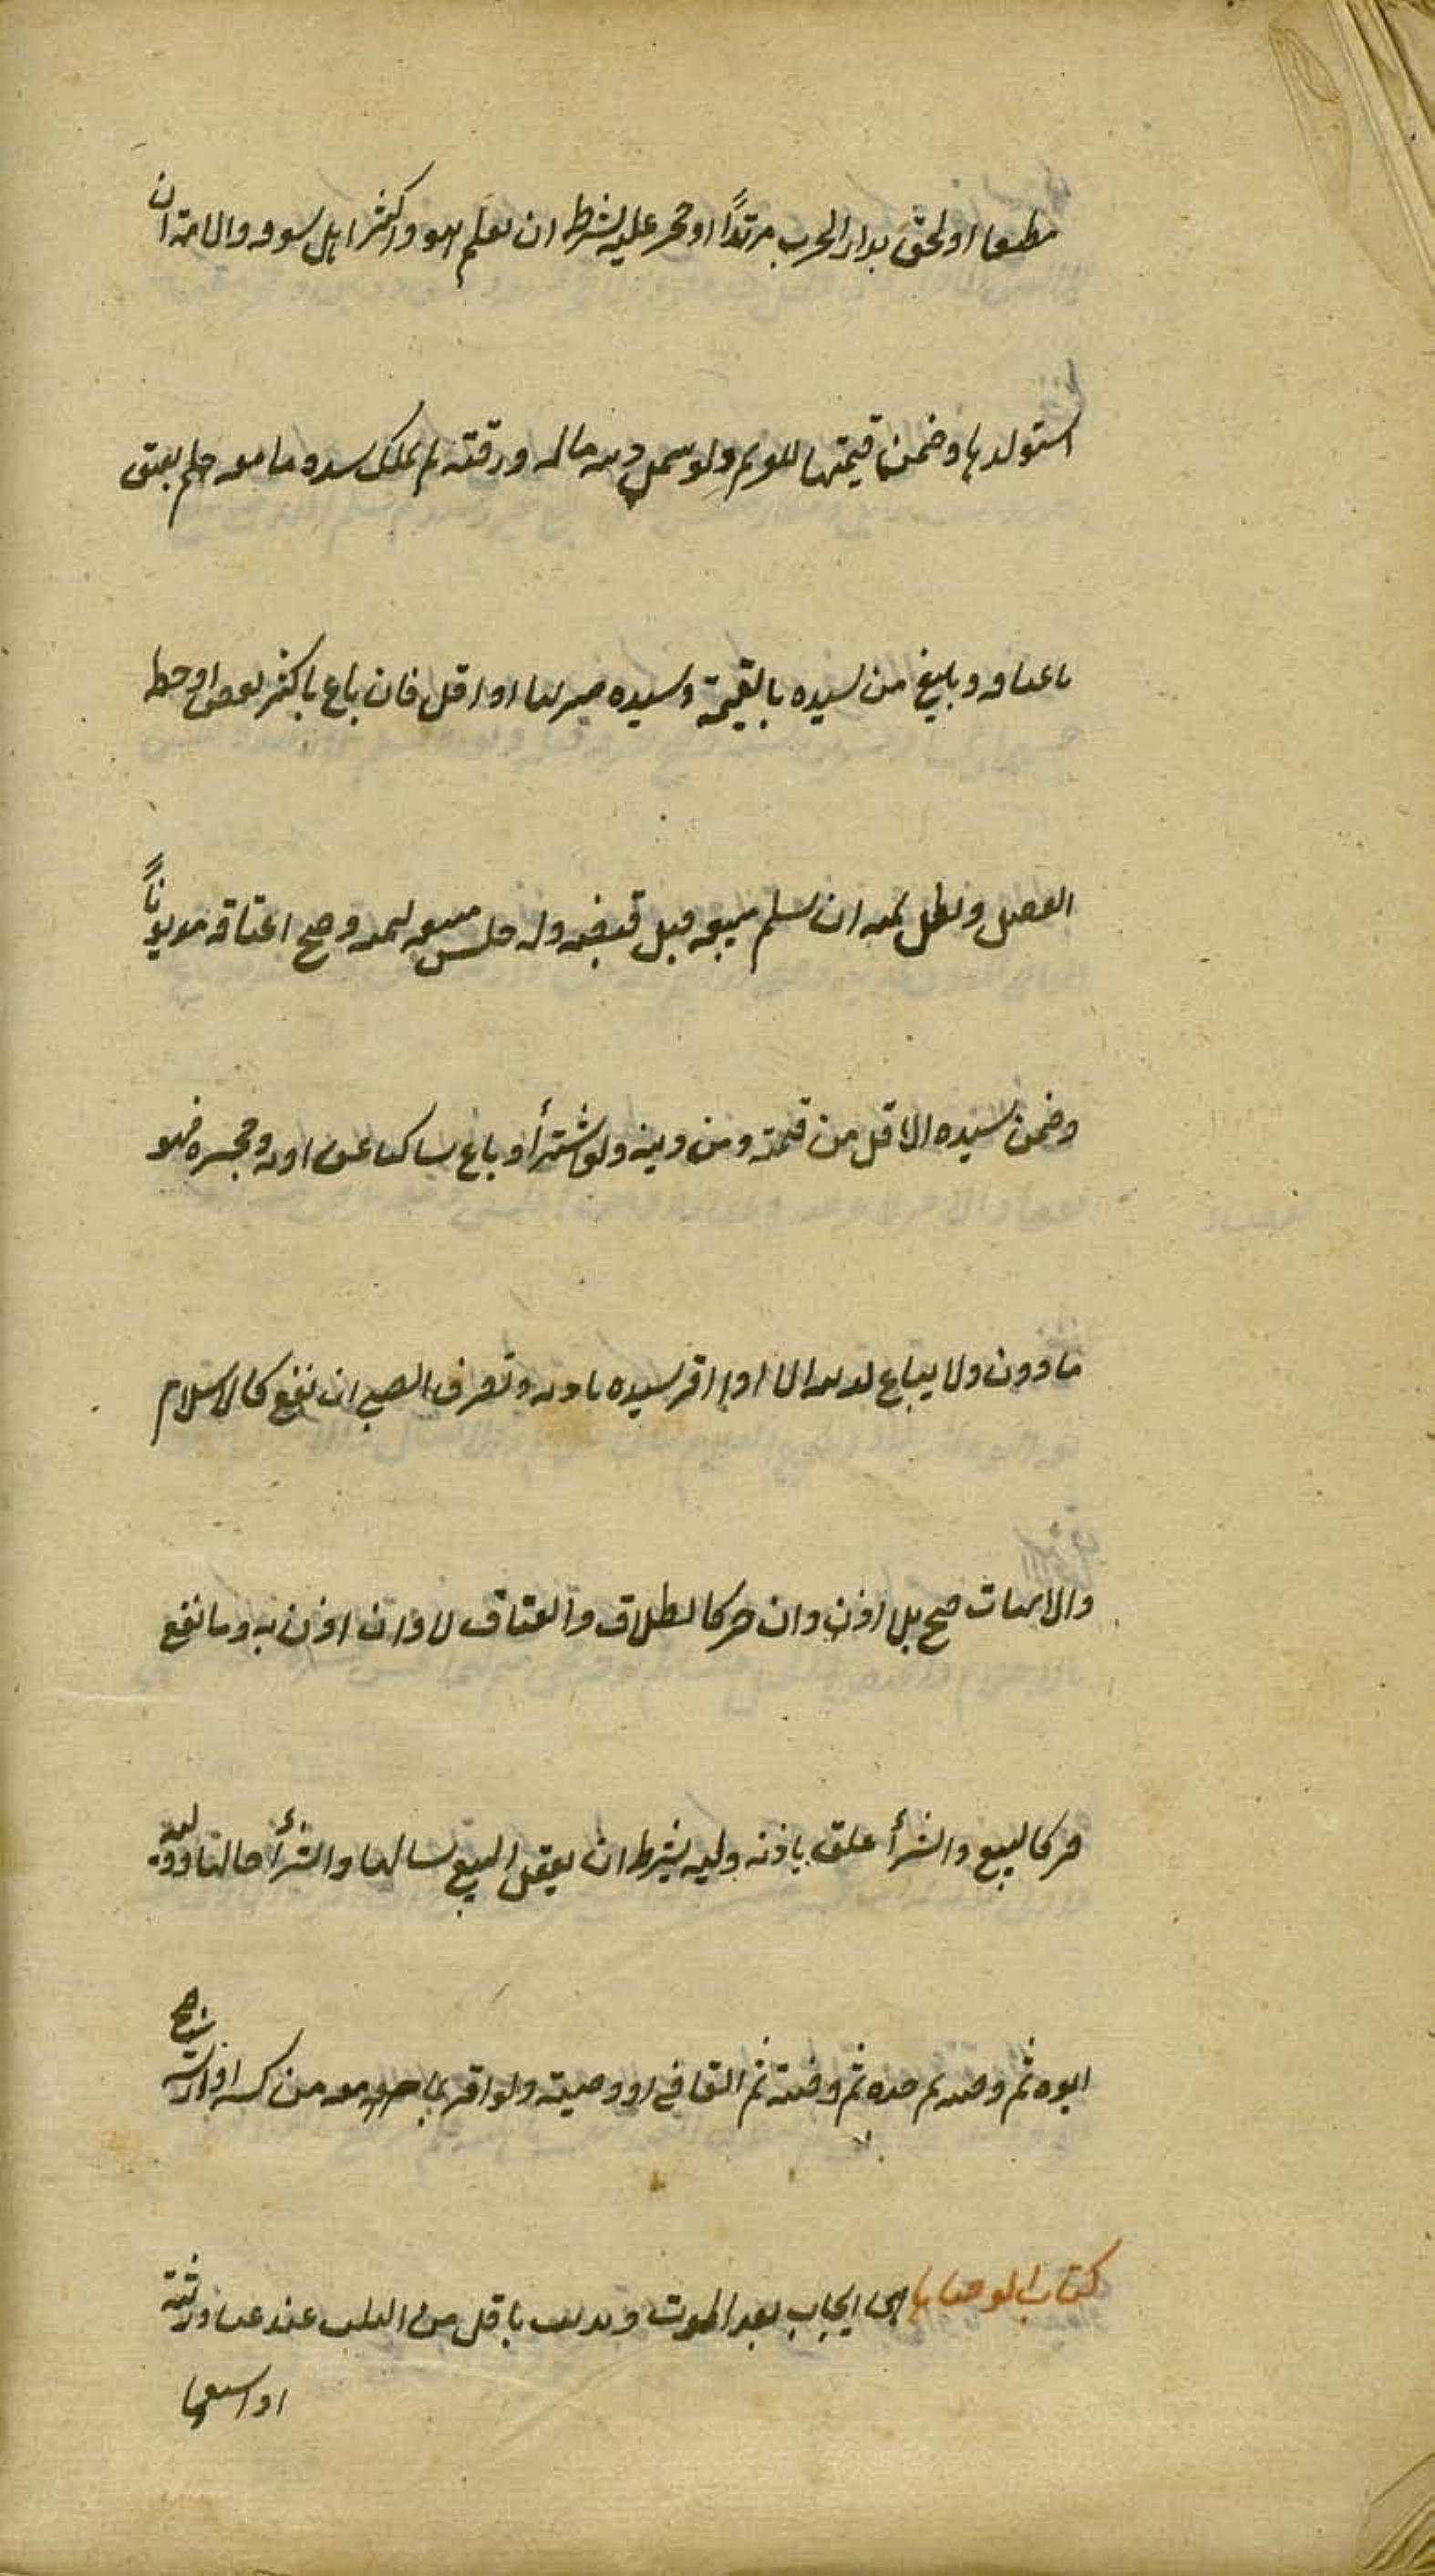 مطبقا او لحق بدار الحرب مرتدًا او حجر عليه بشرط ان يعلم هو واكثر اهل سوقه والامة ان
استولدها وضمن قيمتها للغريم ولو شمل دينه ماله ورقبته لم يملك سيده ما معه فلم يعتق
باعتاقه ويبيع من سيده بالقيمة وسيده منه بها او اقل فان باع باكثر نقص او حط
الفضل وبطل ثمنه ان سلم مبيعه قبل قبضه وله حبس مبيعه لثمنه وصح اعتاقه مديونًا
وضمن سيده الاقل من قيمته ومن دينه ولو شترأ او باع ساكتا عن اذنه وحجره فهو
ماذون ولا يباع لدينه الا اذا اقر سيده باذنه وتصرف الصبي ان نفع كالاسلام
والاتهاب صح بلا اذن وان ضر كالطلاق والعتاق لا وان اذن به وما نفع
وضر كالبيع والشرأ علق باذنه وليه بشرط ان يعقل البيع سالبا والشرأ جالبا ووليه
ابوه ثم وصيه ثم جده ثم وصيه ثم القاضي او وصيته ولو اقر بما معه من كسبه او ارثه صح
كتاب الوصايا هي ايجاب بعد الموت وندبت باقل من الثلث عند غنا ورثته
او استغنا